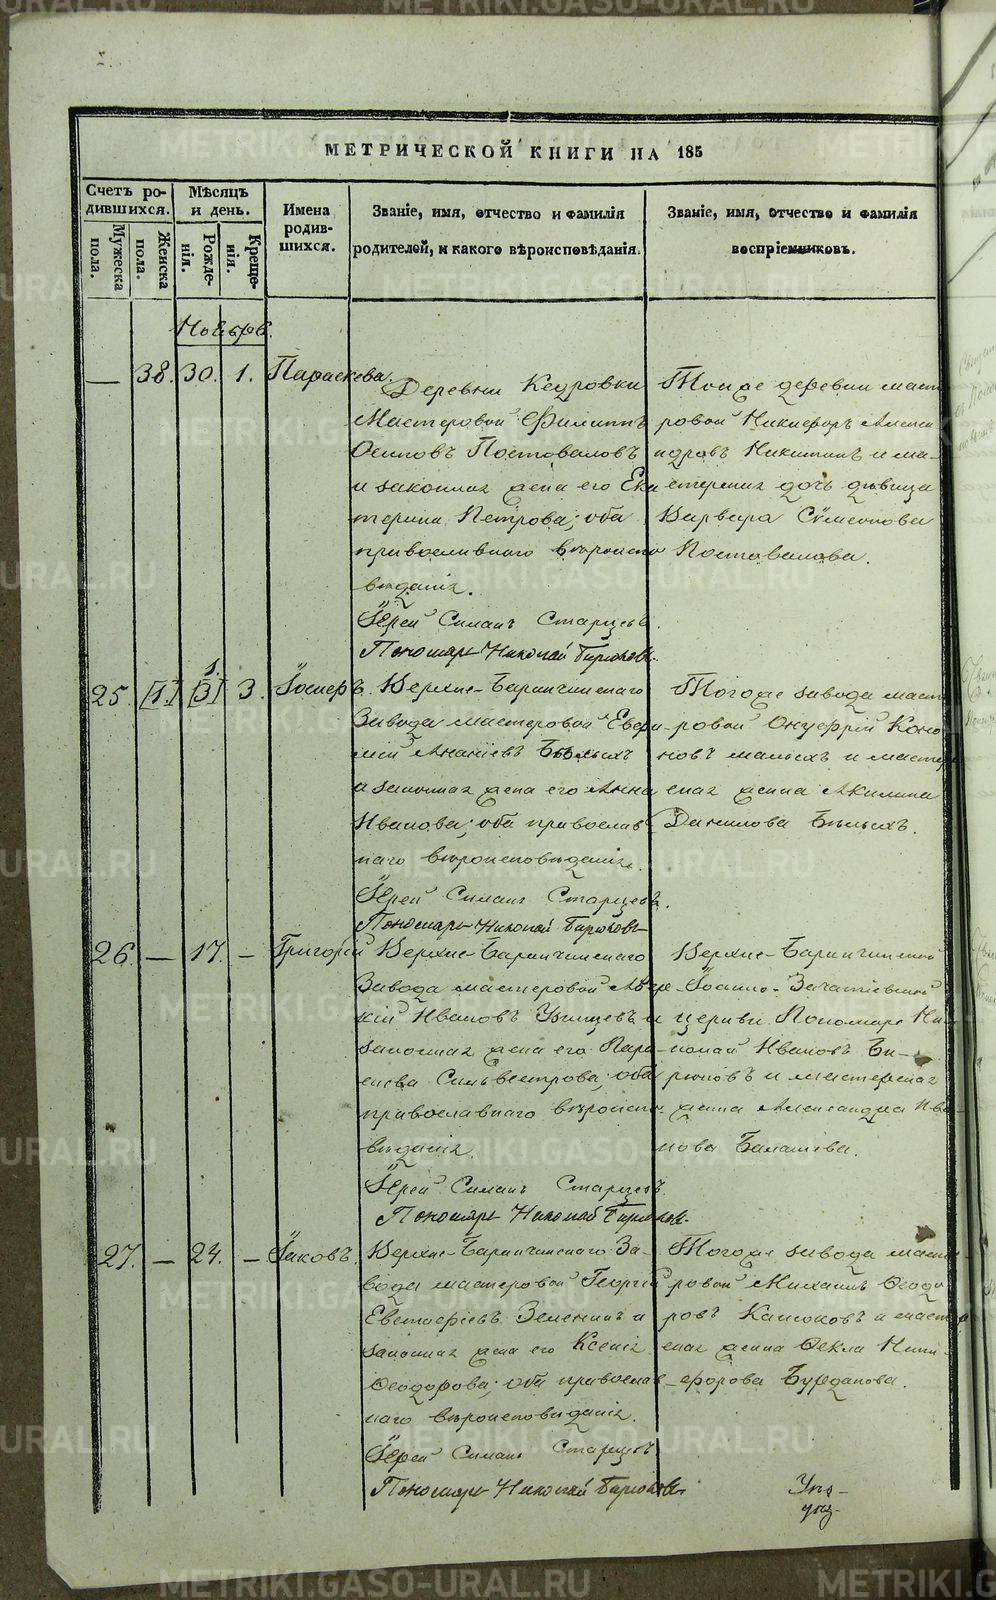 МЕТРИЧЕСКОЙ КНИГИ НА 185
Счетъ ро-
дившихся.
Мужеска
пола.
Женска
пола.
Мѣсяцъ
и день.
Рожде-
нія.
Креще-
нія.
Имена
родив-
шихся.
Званіе, имя, отчество и фамилія
родителей, и какого вѣроисповѣданія.
Званіе, имя, отчество и фамилія
воспріемниковъ.
Ноябрь.
— 38. 30. 1. Параскева.
Деревни Кедровки
Мастеровой Филиппъ
Осиповъ Постоваловъ
и законная жена его Ека
терина Петрова; оба
православнаго вѣроиспо
вѣданія.
Іерей Симонъ Старцевъ.
Пономарь Николай Бирюковъ.
Тойже деревни масте
ровой Никифоръ Алекса
ндровъ Никитинъ и ма-
стерская дочь дѣвица
Варвара Сѵмеонова
Постовалова.
25. [1.] 1. [3] 3. Іосифъ.
Верхне-Баранчинскаго
Завода мастеровой Евфи-
мій Ананіевъ Бѣлыхъ
и законная жена его Анна
Иванова; оба православ
наго вѣроисповѣданія.
Іерей Симонъ Старцевъ.
Пономарь Николай Бирюковъ
Тогоже завода масте
ровой Онуфрій Коно
новъ Малыхъ и мастер
ская жена Акилина
Данилова Бѣлыхъ.
26. — 17. — Григорій
Верхне-Баранчинскаго
Завода мастеровой
Ивановъ и
законная жена его Пара-
скева Сильвестрова; оба
православнаго вѣроиспо-
вѣданія.
Іерей Симонъ Старцевъ.
Пономарь Николай Бирюковъ.
Верхне-Баранчинской
Іоанно-Зачатіевской
церкви Пономарь Ни-
колай Ивановъ Би-
рюковъ и мастерская
жена Александра Ива-
нова Балашева.
27. — 24. — Іаковъ.
Верхне-Баранчинскаго За-
вода мастеровой Георгій
Евстафіевъ Зеленинъ и
законная жена его Ксенія
Ѳеодорова; оба православ-
наго вѣроисповѣданія.
Іерей Симонъ Старцевъ
Пономарь Николай Бирюковъ.
Тогоже завода масте-
ровой Михаилъ Ѳеодо
ровъ Капюковъ и мастер
ская жена Ѳекла Ники-
форова Бурдакова.
METRIKI.GASO-URAL.RU